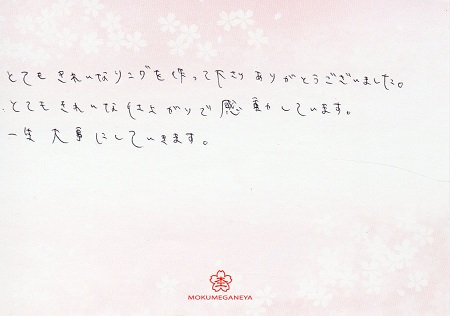 とても きれいなリングを作って下さり ありがとうございました。
とてもきれいな仕上がりで感動しています。
一生大事にしていきます。
MOKUMEGANEYA